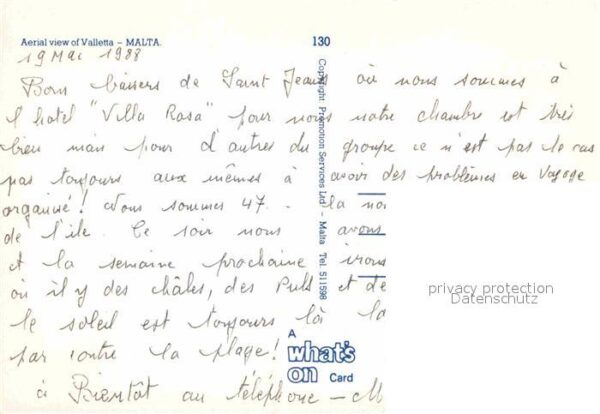 Aerial view of Valletta – MALTA. 130
19 Mai 1988
Bons baisers de Saint Jeans où nous sommes à
l'hotel "Villa Rosa" pour nous notre chambre est très
bien mais pour d'autres du groupe ce n'est pas le cas
pas toujours aux mêmes à avoir des problèmes en voyage
organisé! Nous sommes 47.
de l'île. Ce soir nous avons
et la semaine prochaine irons
où il y des châles, des Pulls et de
le soleil est toujours là la
par contre la plage!
à Bientôt au téléphone – M
Copyright Promotion Services Ltd – Malta Tel. 511598
A
what's
on Card
privacy protection
Datenschutz